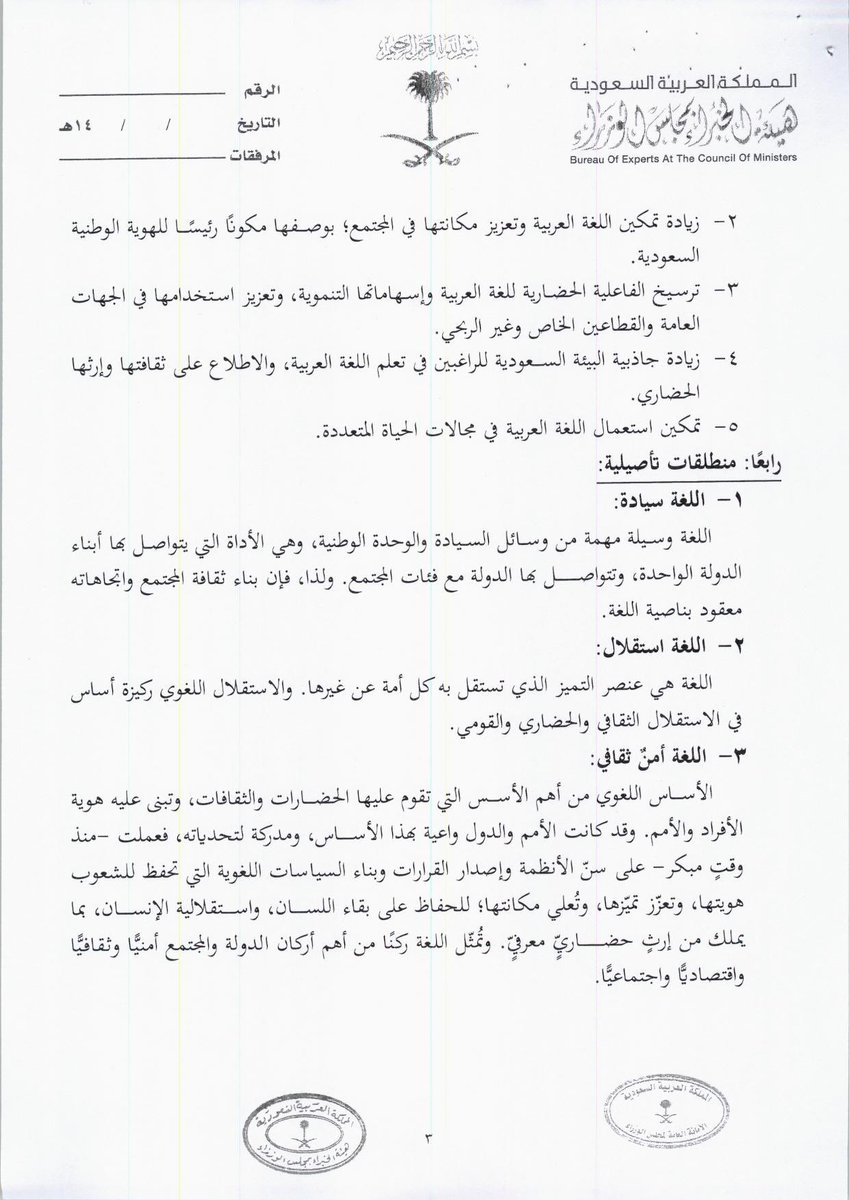 بسم الله الرحمن الرحيم
المملكة العربية السعودية
هيئة الخبراء بمجلس الوزراء
Bureau Of Experts At The Council Of Ministers
الرقم
التاريخ / / ١٤هـ
المرفقات
٢- زيادة تمكين اللغة العربية وتعزيز مكانتها في المجتمع؛ بوصفها مكونًا رئيسًا للهوية الوطنية
السعودية.
٣- ترسيخ الفاعلية الحضارية للغة العربية وإسهاماتها التنموية، وتعزيز استخدامها في الجهات
العامة والقطاعين الخاص وغير الربحي.
٤- زيادة جاذبية البيئة السعودية للراغبين في تعلم اللغة العربية، والاطلاع على ثقافتها وإرثها
الحضاري.
٥- تمكين استعمال اللغة العربية في مجالات الحياة المتعددة.
رابعًا: منطلقات تأصيلية:
١- اللغة سيادة:
اللغة وسيلة مهمة من وسائل السيادة والوحدة الوطنية، وهي الأداة التي يتواصل بها أبناء
الدولة الواحدة، وتتواصل بها الدولة مع فئات المجتمع. ولذا، فإن بناء ثقافة المجتمع واتجاهاته
معقود بناصية اللغة.
٢- اللغة استقلال:
اللغة هي عنصر التميز الذي تستقل به كل أمة عن غيرها. والاستقلال اللغوي ركيزة أساس
في الاستقلال الثقافي والحضاري والقومي.
٣- اللغة أمنٌ ثقافي:
الأساس اللغوي من أهم الأسس التي تقوم عليها الحضارات والثقافات، وتبنى عليه هوية
الأفراد والأمم. وقد كانت الأمم والدول واعية بهذا الأساس، ومدركة لتحدياته، فعملت -منذ
وقتٍ مبكر- على سنّ الأنظمة وإصدار القرارات وبناء السياسات اللغوية التي تحفظ للشعوب
هويتها، وتعزّز تميّزها، وتُعلي مكانتها؛ للحفاظ على بقاء اللسان، واستقلالية الإنسان، بما
يملك من إرثٍ حضاريٍّ معرفيٍّ. وتُمثّل اللغة ركنًا من أهم أركان الدولة والمجتمع أمنيًّا وثقافيًّا
واقتصاديًّا واجتماعيًّا.
المملكة العربية السعودية
الأمانة العامة لمجلس الوزراء
المملكة العربية السعودية
هيئة الخبراء بمجلس الوزراء
٣